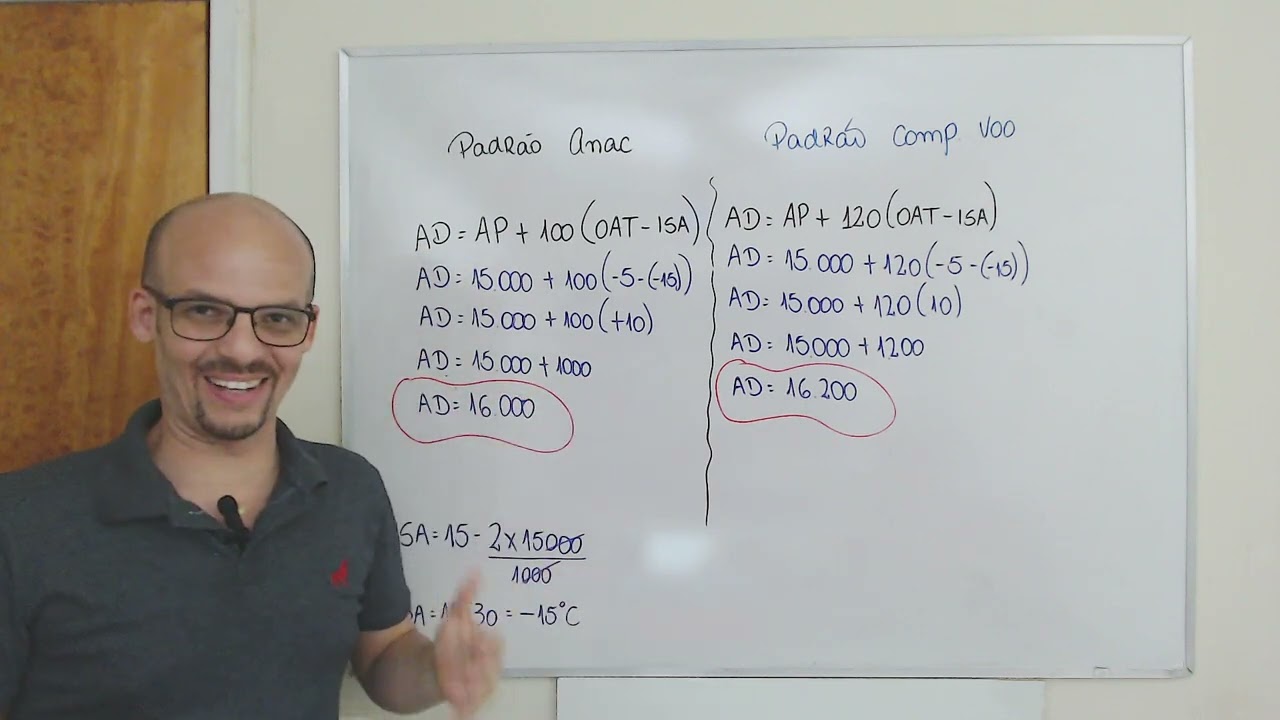 Padrão Anac
AD = AP + 100 (OAT - ISA)
AD = 15.000 + 100 (-5 - (-15))
AD = 15.000 + 100 (+10)
AD = 15.000 + 1000
AD = 16.000
SA = 15 - 2 x 15000
1000
A = 1 30 = -15°C
Padrão Comp. Voo
AD = AP + 120 (OAT - ISA)
AD = 15.000 + 120 (-5 - (-15))
AD = 15.000 + 120 (10)
AD = 15000 + 1200
AD = 16.200